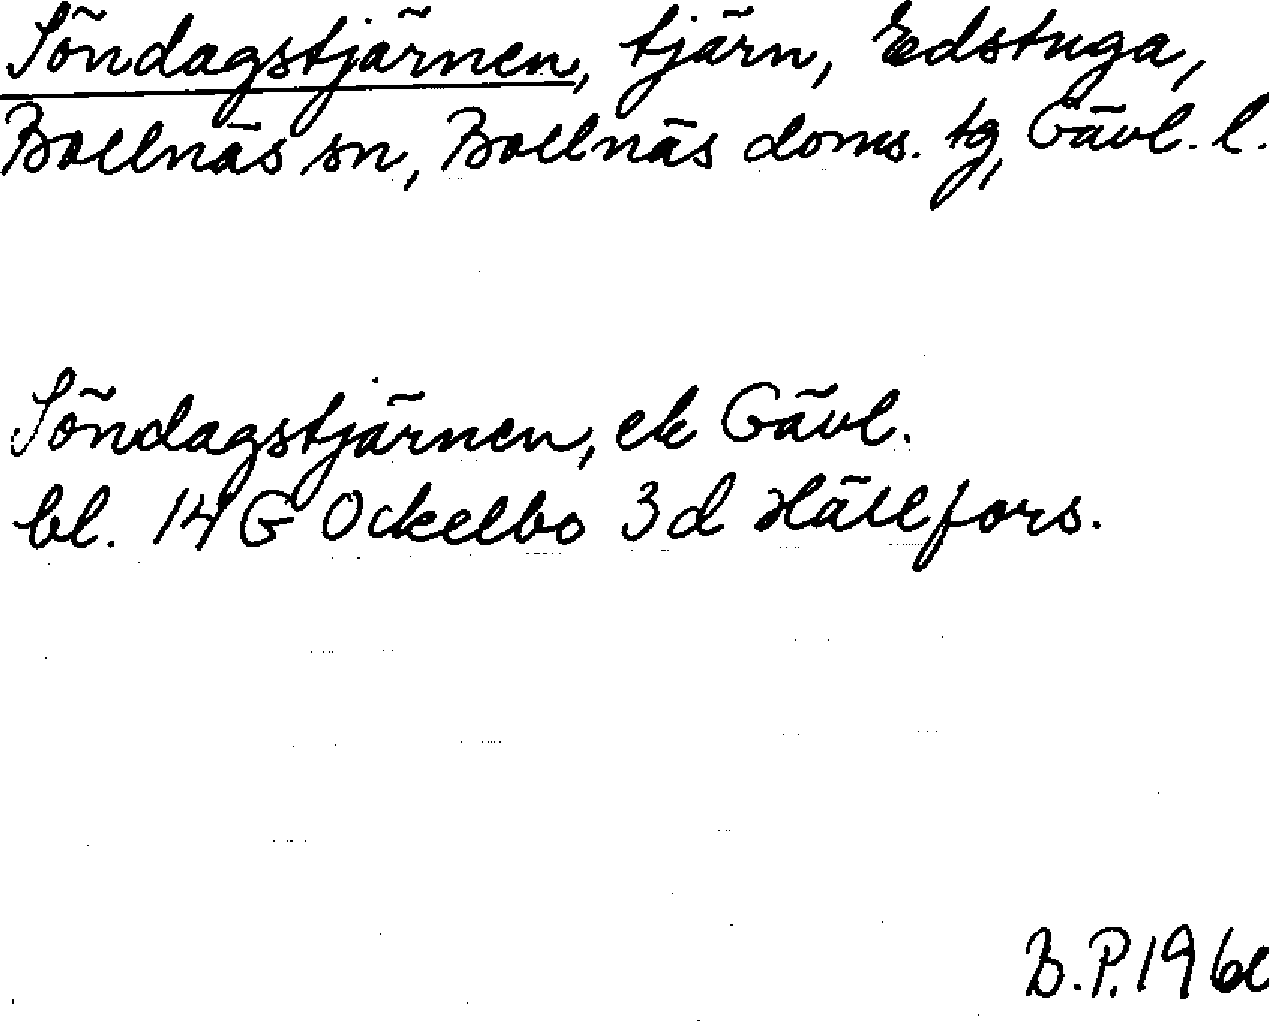 Söndagstjärnen, tjärn, Edstuga,
Bollnäs sn, Bollnäs doms. tg, Gävl. l.
Söndagstjärnen, ek Gävl.
bl. 14 G Ockelbo 3d Hällfors.
B.P.